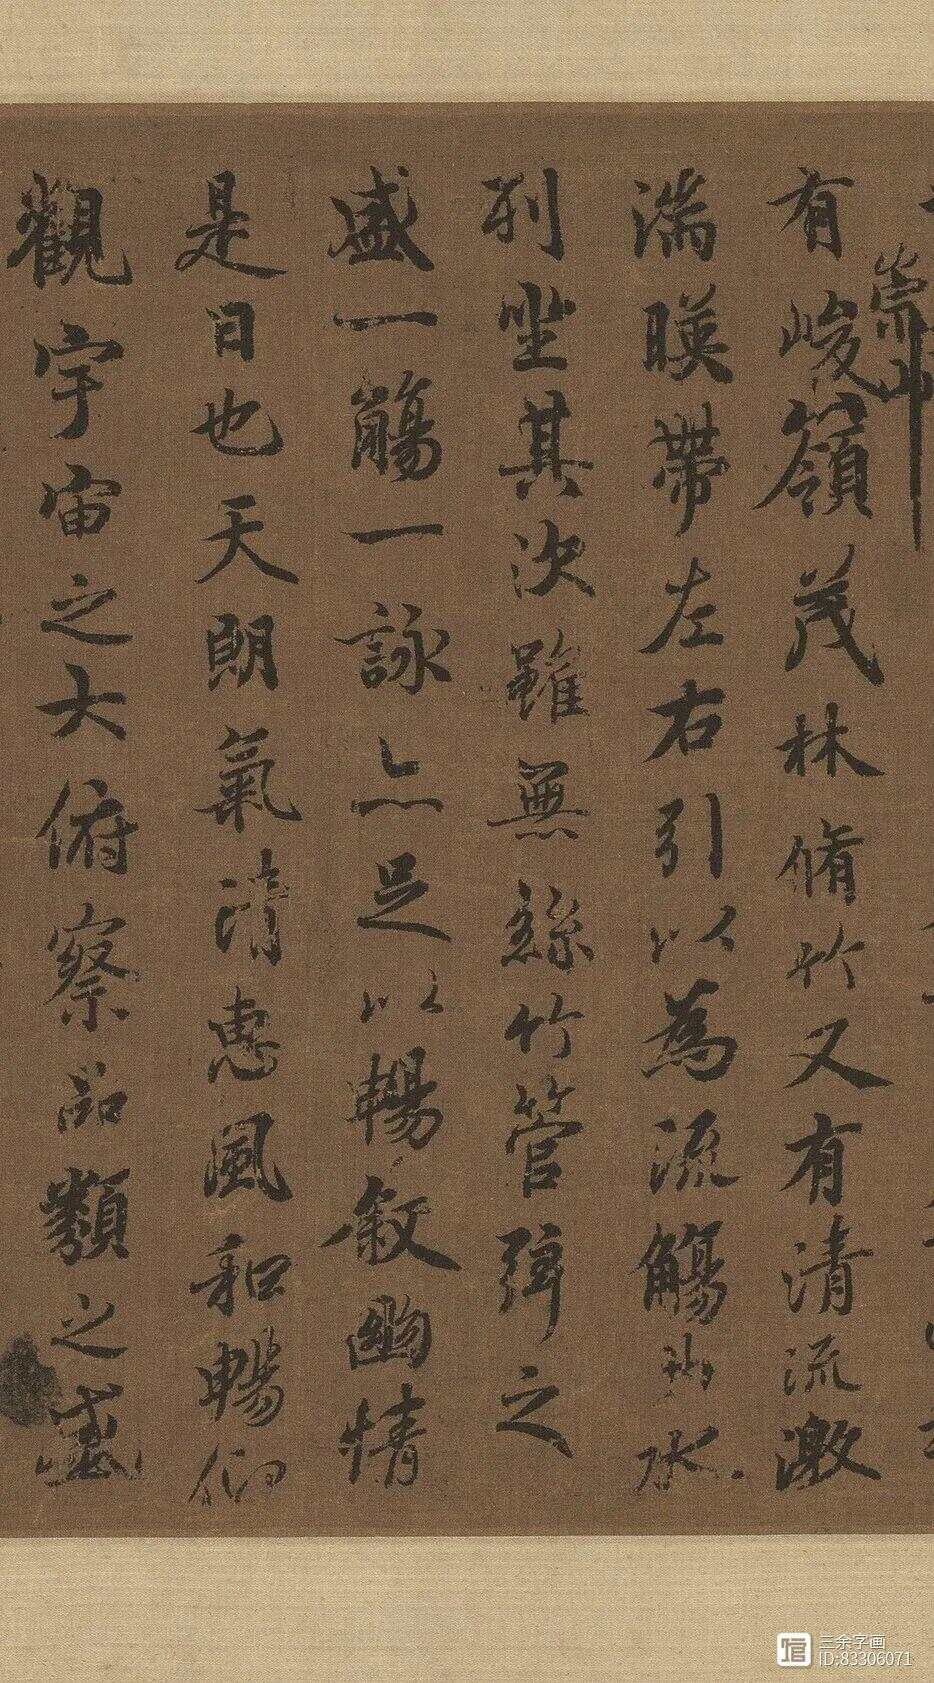 崇山
有峻嶺茂林脩竹又有清流激
湍暎帶左右引以為流觴曲水
列坐其次雖無絲竹管弦之
盛一觴一詠亦足以暢敘幽情
是日也天朗氣清惠風和暢仰
觀宇宙之大俯察品類之盛
三余字画
ID:83306071